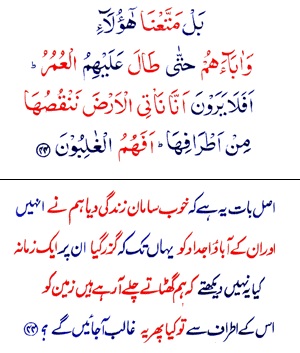 بَلْ مَتَّعْنَا هٰٓؤُلَآءِ
وَاٰبَآءَهُمْ حَتّٰى طَالَ عَلَيْهِمُ الْعُمُرُ ؕ
اَفَلَا يَرَوْنَ اَنَّا نَاْتِى الْاَرْضَ نَنْقُصُهَا
مِنْ اَطْرَافِهَا ؕ اَفَهُمُ الْغٰلِبُوْنَ ﴿۴۴﴾
اصل بات یہ ہے کہ خوب سامان زندگی دیا ہم نے انہیں
اور ان کے آباؤ اجداد کو یہاں تک کہ گزر گیا ان پر ایک زمانہ
کیا نہیں دیکھتے کہ ہم گھٹاتے چلے آرہے ہیں زمین کو
اس کے اطراف سے تو کیا پھر یہ غالب آجائیں گے ؟ ﴿۴۴﴾